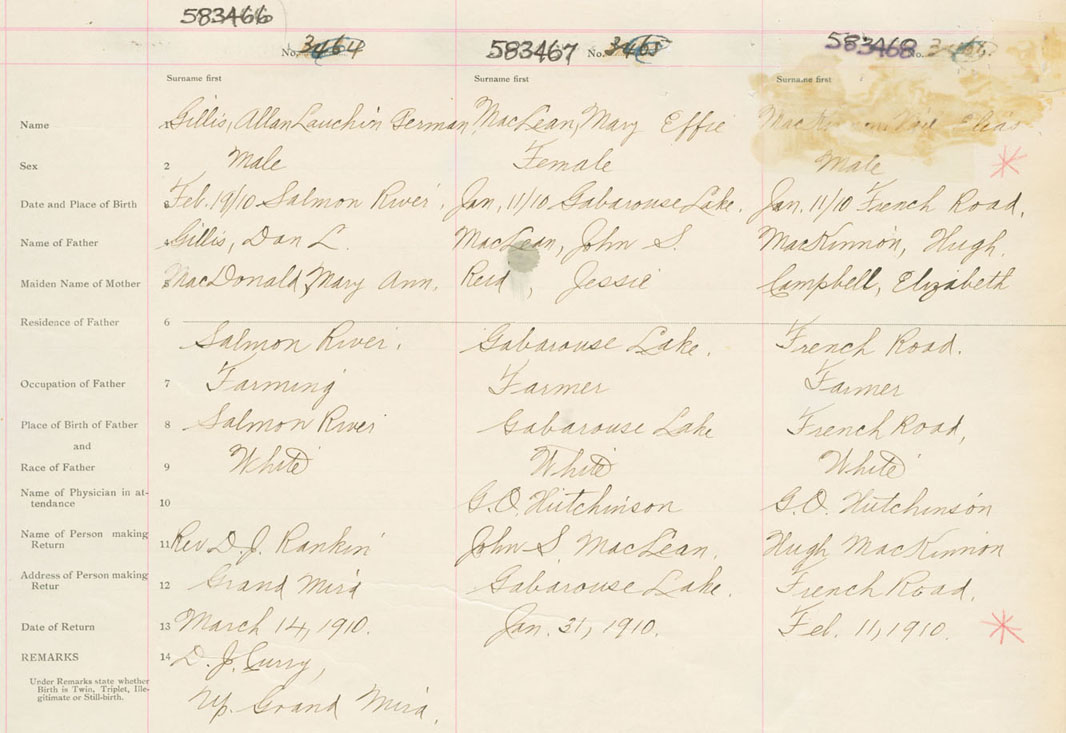 583466
No. 3464 583467 No. 3465 583468 No.
Surname first Surname first Surname first
Name 1 Gillis, Allan Lauchin German MacLean, Mary Effie MacKinnon, Elias
Sex 2 Male Female Male
Date and Place of Birth 3 Feb. 19/10 Salmon River. Jan, 11/10 Gabarouse Lake. Jan, 11/10 French Road.
Name of Father 4 Gillis, Dan L. MacLean, John S. MacKinnon, Hugh.
Maiden Name of Mother 5 MacDonald, Mary Ann. Reid, Jessie Campbell, Elizabeth
Residence of Father 6
Salmon River. Gabarouse Lake. French Road.
Occupation of Father 7 Farming Farmer Farmer
Place of Birth of Father 8 Salmon River Gabarouse Lake French Road,
and
Race of Father 9 White White White
Name of Physician in at-
tendance 10 G.O. Hutchinson G.O. Hutchinson
Name of Person making
Return 11 Rev D.J. Rankin John S MacLean. Hugh MacKinnon
Address of Person making
Retur 12 Grand Mira Gabarouse Lake. French Road.
Date of Return 13 March 14, 1910. Jan. 31, 1910. Feb. 11, 1910.
REMARKS 14 D.J. Curry,
Under Remarks state whether
Birth is Twin, Triplet, Ille-
gitimate or Still-birth.
Up. Grand Mira.